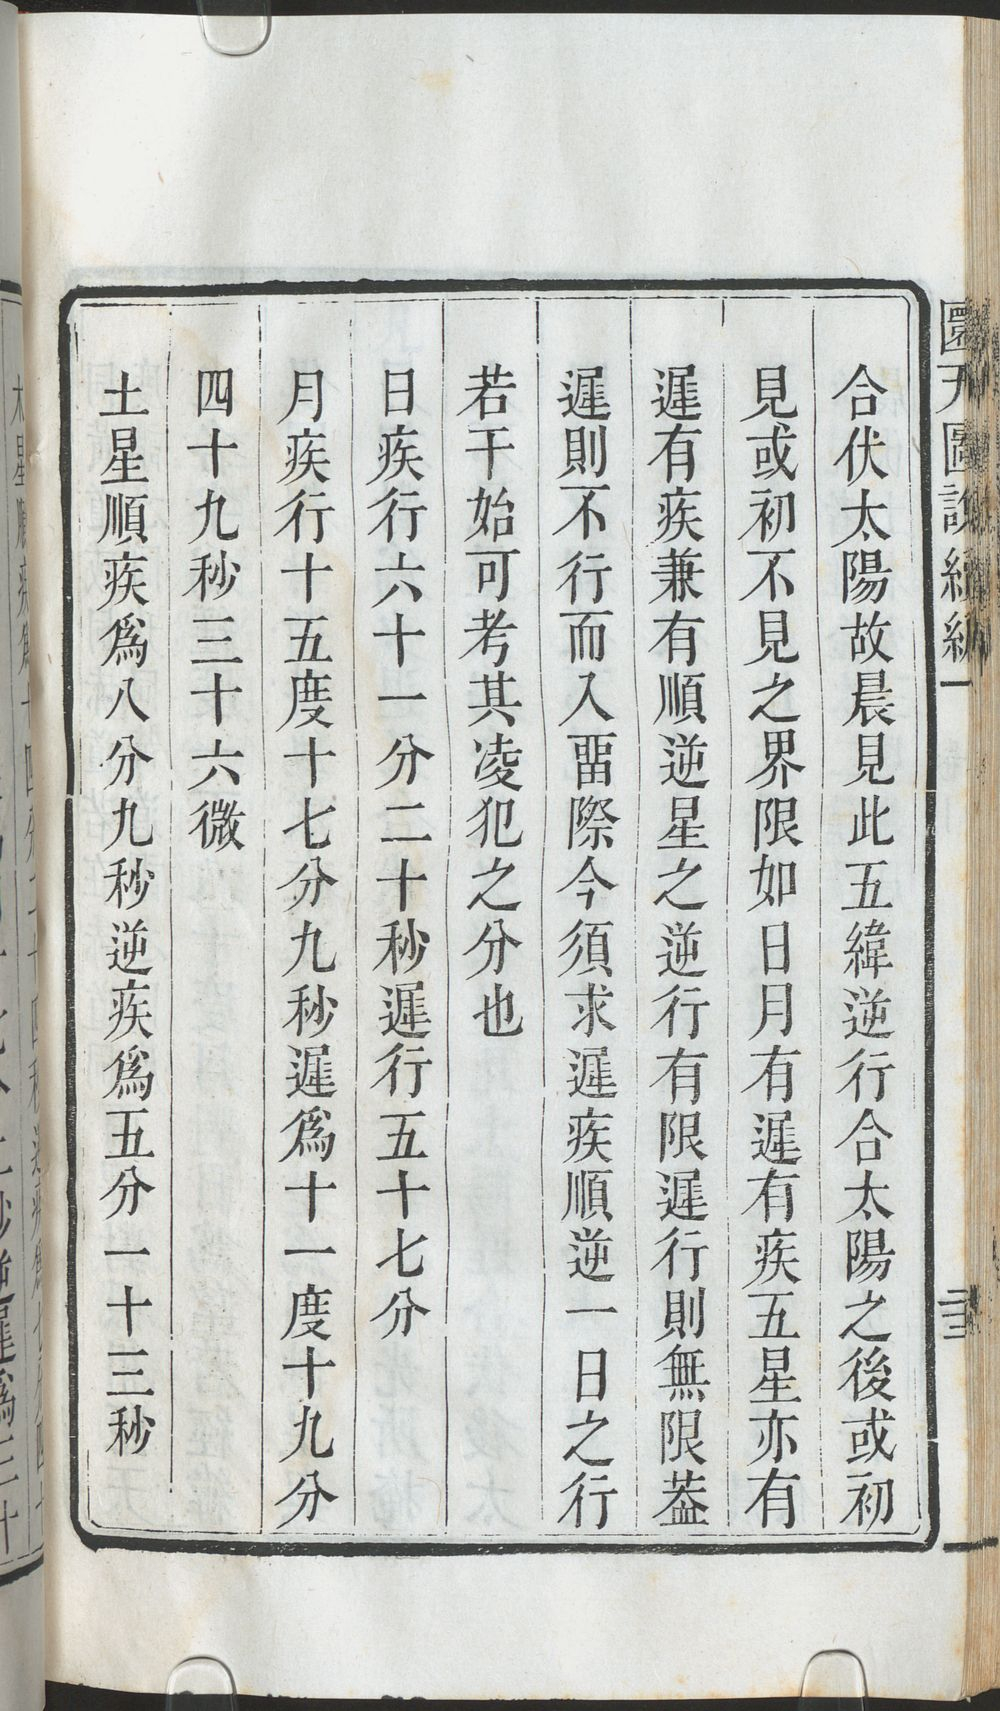 圜天圖說續編一
合伏太陽故晨見此五緯逆行合太陽之後或初
見或初不見之界限如日月有遲有疾五星亦有
遲有疾兼有順逆星之逆行有限遲行則無限葢
遲則不行而入畱際今須求遲疾順逆一日之行
若干始可考其凌犯之分也
日疾行六十一分二十秒遲行五十七分
月疾行十五度十七分九秒遲爲十一度十九分
四十九秒三十六微
土星順疾爲八分九秒逆疾爲五分一十三秒